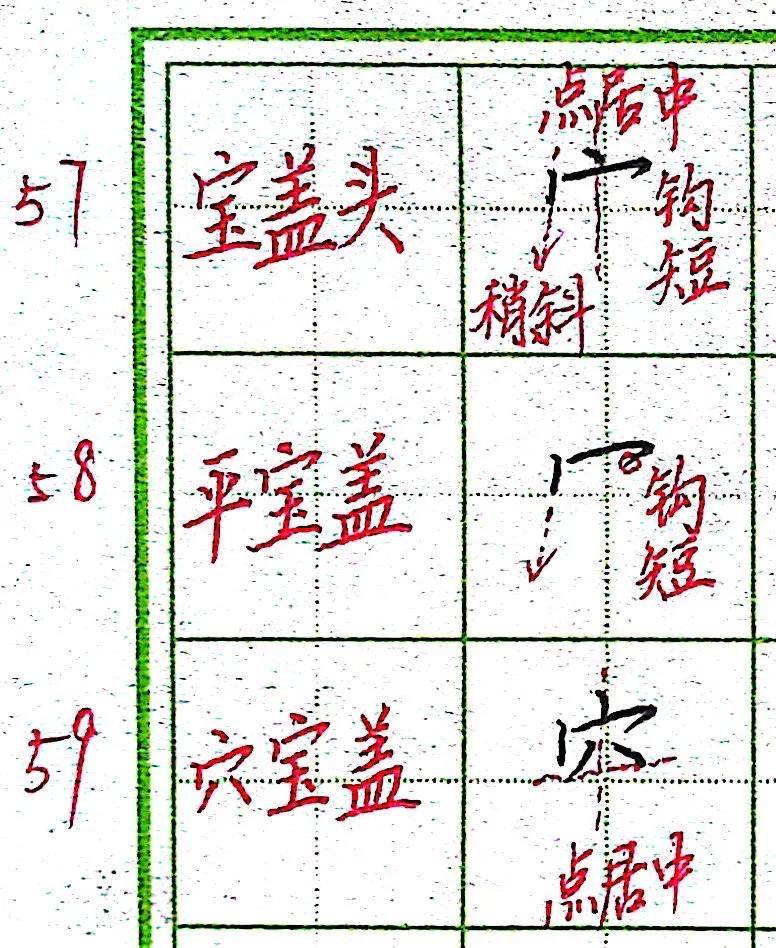 点居中
57 宝盖头 宀 钩短
稍斜
58 平宝盖 冖 钩短
59 穴宝盖 穴
点居中